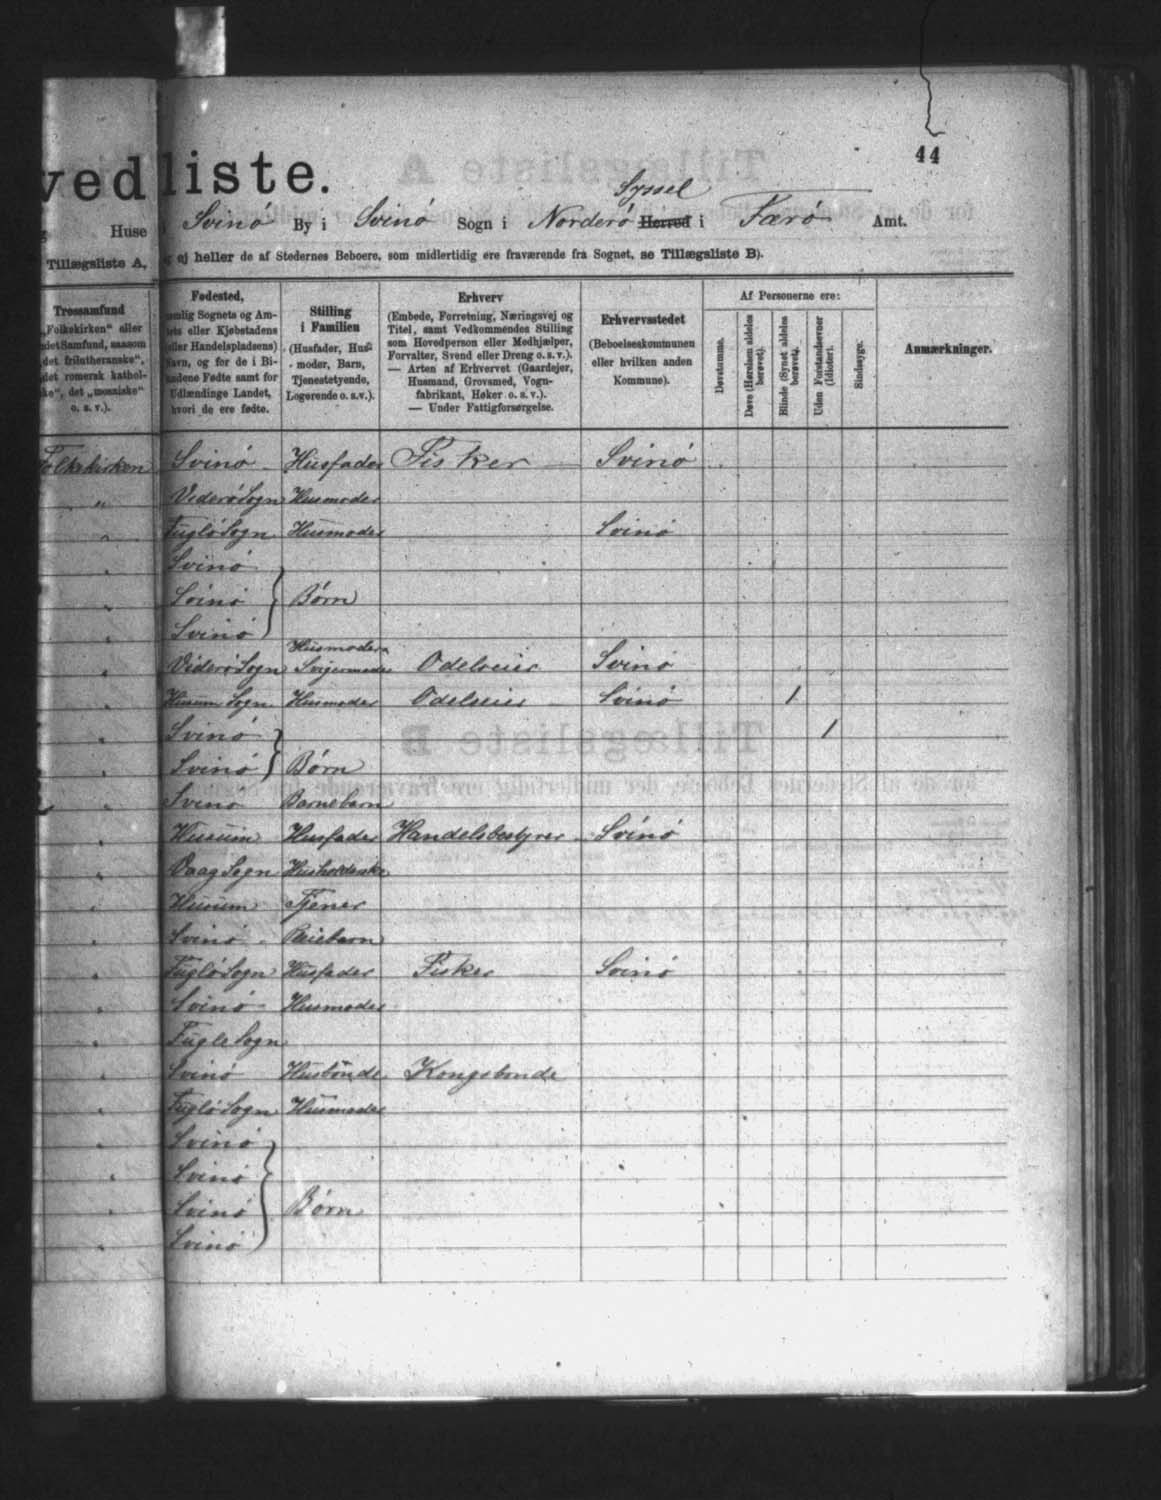 44
vedliste.
Huse i Svinö By i Svinö Sogn i Norderö Syssel Herred i Færö Amt.
Tillægsliste A, ej heller de af Stedernes Beboere, som midlertidig ere fraværende fra Sognet, se Tillægsliste B).
Trossamfund
„Folkekirken“ eller
det Samfund, saasom
det frilutheranske“,
det romersk kathol-
ke“, det „mosaiske“
o. s. v.).
Fødested,
nemlig Sognets og Am-
tets eller Kjøbstadens
eller Handelspladsens)
Navn, og for de i Bi-
landene Fødte samt for
Udlændinge Landet,
hvori de ere fødte.
Stilling
i Familien
(Husfader, Hus-
moder, Barn,
Tjenestetyende,
Logerende o. s. v.).
Erhverv
(Embede, Forretning, Næringsvej og
Titel, samt Vedkommendes Stilling
som Hovedperson eller Medhjælper,
Forvalter, Svend eller Dreng o. s. v.).
— Arten af Erhvervet (Gaardejer,
Husmand, Grovsmed, Vogn-
fabrikant, Høker o. s. v.).
— Under Fattigforsørgelse.
Erhvervsstedet
(Beboelseskommunen
eller hvilken anden
Kommune).
Af Personerne ere:
Døvstumme.
Døve (Hørelsen aldeles
berøvet).
Blinde (Synet aldeles
berøvet).
Uden Forstandsevner
(Idioter).
Sindssyge.
Anmærkninger.
Folkekirken Svinö Husfader Fisker Svinö
" Viderö Sogn Husmoder
" Fuglö Sogn Husmoder Svinö
" Svinö
" Svinö } Börn
" Svinö
" Viderö Sogn Husmoders Svigermoder Odelseier Svinö
" Husum Sogn Husmoder Odelseier Svinö 1
" Svinö 1
" Svinö } Börn
" Svinö Barnebarn
" Husum Husfader Handelsbestyrer Svinö
" Vaag Sogn Husholderske
" Husum Tjener
" Svinö Pleiebarn
" Fuglö Sogn Husfader Fisker Svinö
" Svinö Husmoder
" Fugle Sogn
" Svinö Husbonde Kongsbonde
" Fuglö Sogn Husmoder
" Svinö
" Svinö
" Svinö } Börn
" Svinö